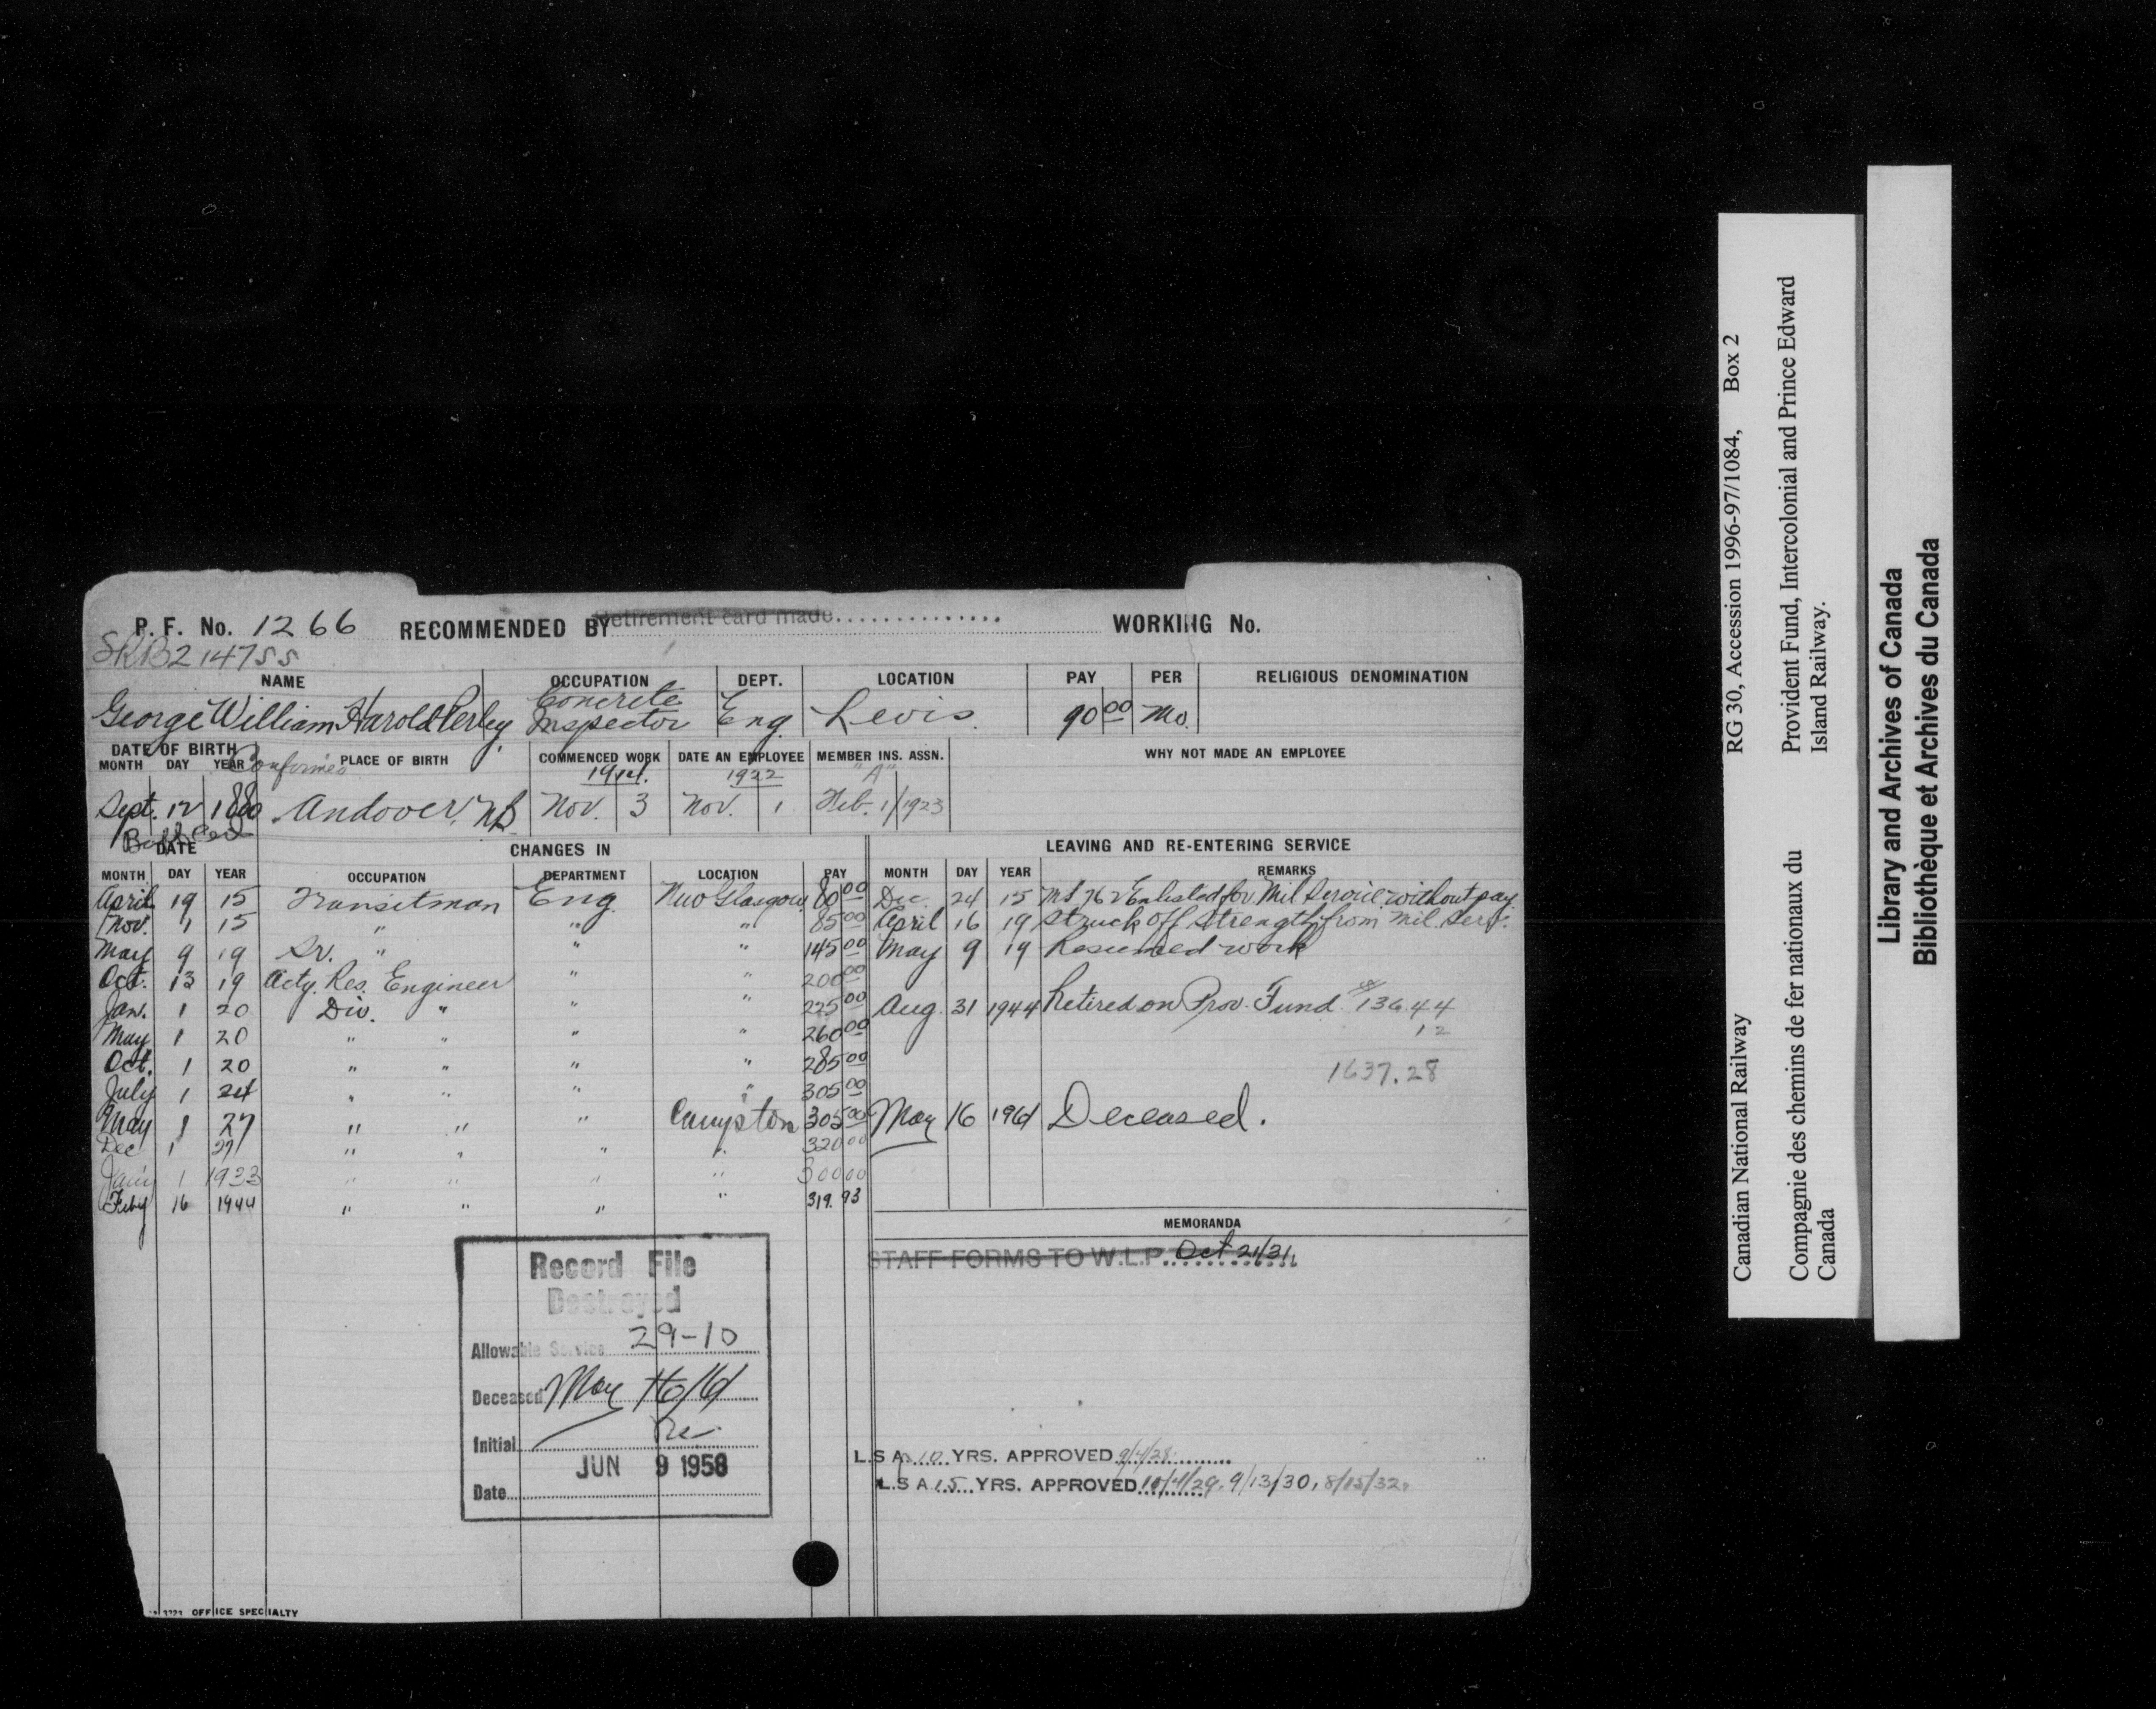 P. F. No. 1266 RECOMMENDED BY Retirement card made WORKING No.
SRB214755
NAME OCCUPATION DEPT. LOCATION PAY PER RELIGIOUS DENOMINATION
George William Harold Perley Concrete Inspector Eng. Levis. 90 00 Mo.
DATE OF BIRTH PLACE OF BIRTH COMMENCED WORK DATE AN EMPLOYEE MEMBER INS. ASSN. WHY NOT MADE AN EMPLOYEE
MONTH DAY YEAR 1914. 1922 "A"
Sept. 12 1880 Andover. NB Nov. 3 Nov. 1 Feb. 1/1923
DATE CHANGES IN LEAVING AND RE-ENTERING SERVICE
MONTH DAY YEAR OCCUPATION DEPARTMENT LOCATION PAY MONTH DAY YEAR REMARKS
April 19 15 Transitman Eng. New Glasgow 80 00 Dec. 24 15 Enlisted for Mil Service without pay.
Nov. 1 15 " " " 85 00 April 16 19 Struck off Strength from Mil. Serv.
May 9 19 Sr. " " " 145 00 May 9 19 Resumed work
Oct. 13 19 Actg. Res. Engineer " " 200 00
Jan. 1 20 Div. " " " 225 00 Aug. 31 1944 Retired on Prov. Fund 136.44
May 1 20 " " " " 260 00 12
Oct. 1 20 " " " " 285 00 1637.28
July 1 24 " " " " 305 00
May 1 27 " " " Campton 305 00 May 16 1961 Deceased.
Dec 1 27 " " " " 320 00
Jan'y 1 1933 " " " " 300 00
Feby 16 1944 " " " " 319.93
MEMORANDA
STAFF FORMS TO W.L.P. Oct 21/31.
Record File
Destroyed
Allowable Service 29-10
Deceased May 16/61
Initial
JUN 9 1958
Date
L.S A. 10 YRS. APPROVED 9/4/28
L.S A. 15 YRS. APPROVED 10/4/29, 9/13/30, 8/15/32,
OFFICE SPECIALTY
Canadian National Railway RG 30, Accession 1996-97/1084, Box 2
Compagnie des chemins de fer nationaux du Provident Fund, Intercolonial and Prince Edward
Canada Island Railway.
Library and Archives of Canada
Bibliothèque et Archives du Canada